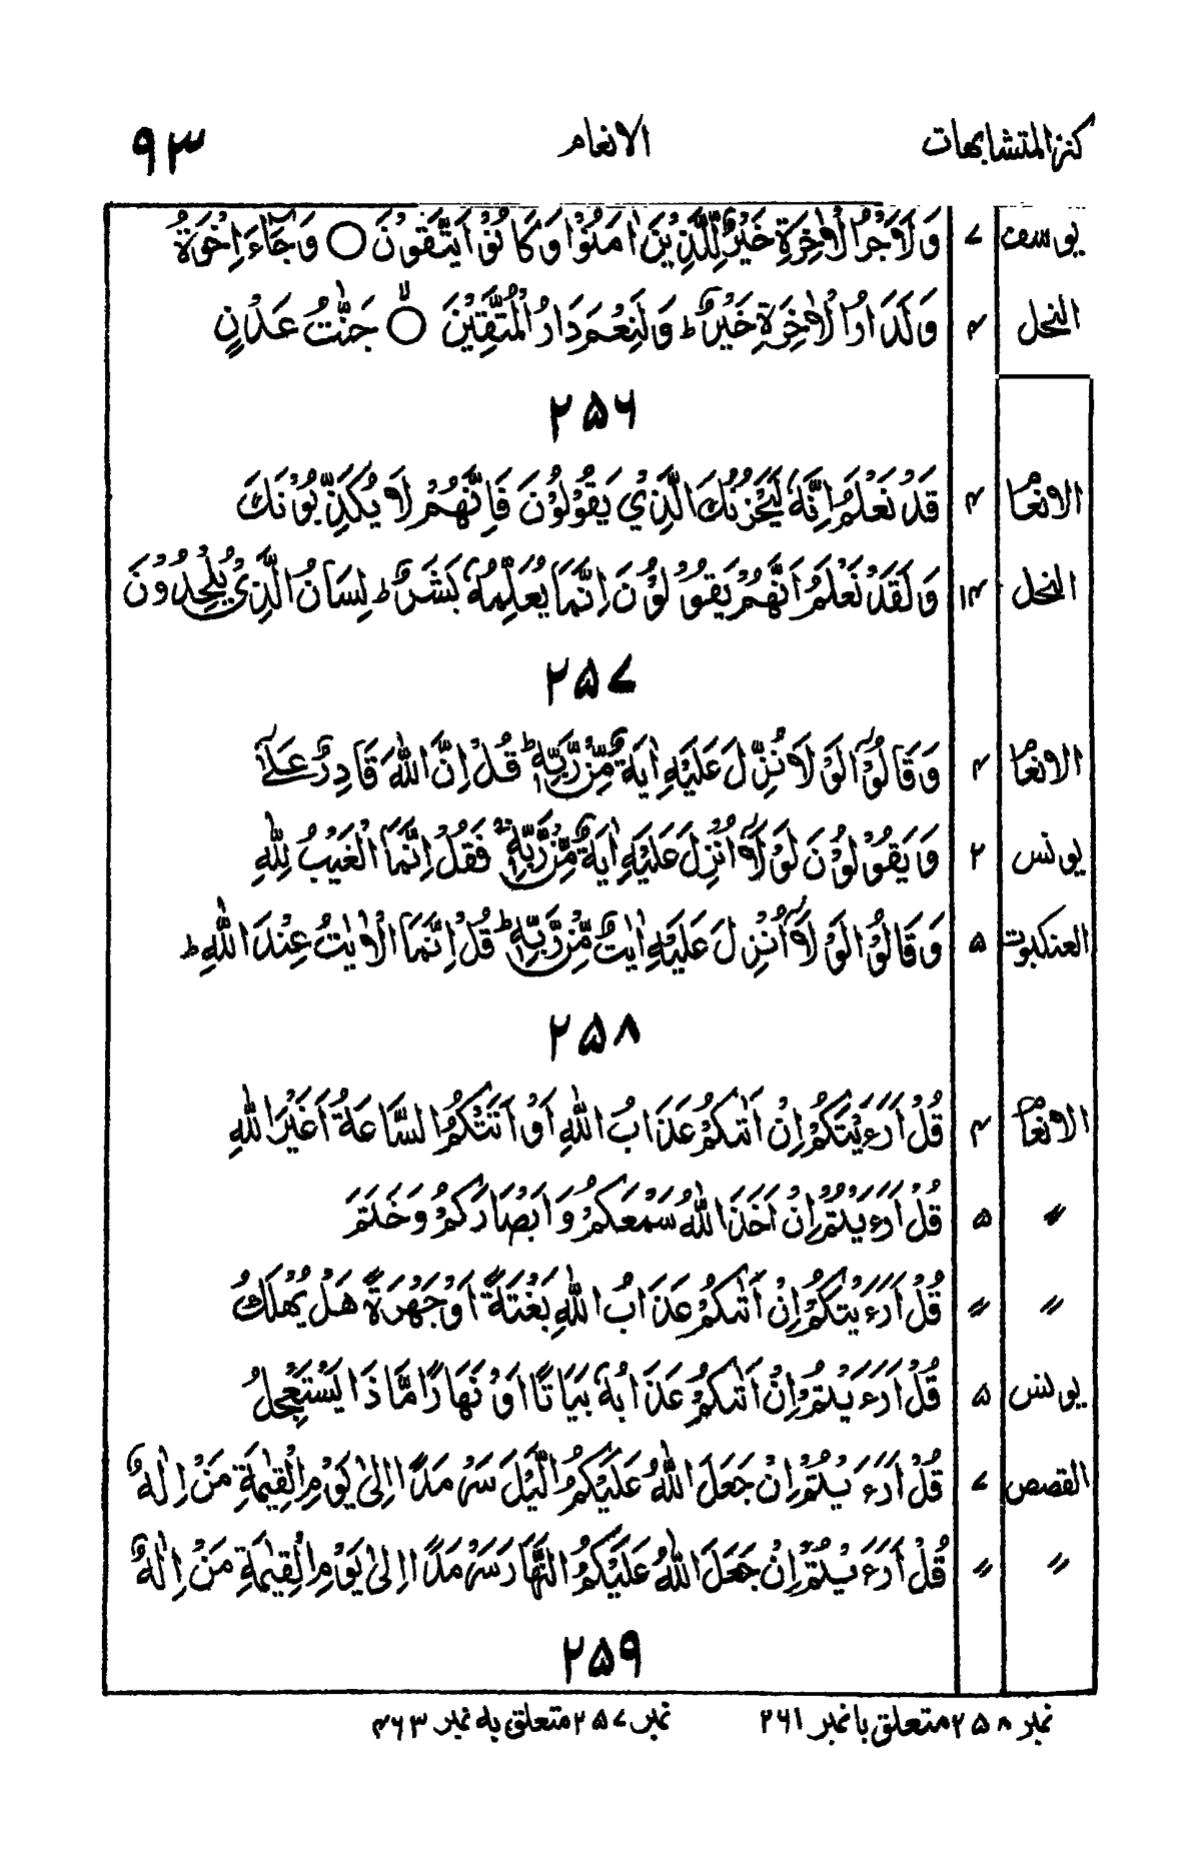 كنز المتشابهات الانعام ٩٣
يوسف ٧ وَلَاَجْرُ الْاٰخِرَةِ خَيْرٌ لِّلَّذِيْنَ اٰمَنُوْا وَكَانُوْا يَتَّقُوْنَ ○ وَجَآءَ اِخْوَةُ
النحل ۴ وَلَدَارُ الْاٰخِرَةِ خَيْرٌ ؕ وَلَنِعْمَ دَارُ الْمُتَّقِيْنَ ○ۙ جَنّٰتُ عَدْنٍ
۲۵۶
الانعام ۴ قَدْ نَعْلَمُ اِنَّهٗ لَيَحْزُنُكَ الَّذِيْ يَقُوْلُوْنَ فَاِنَّهُمْ لَا يُكَذِّبُوْنَكَ
النحل ۱۴ وَلَقَدْ نَعْلَمُ اَنَّهُمْ يَقُوْلُوْنَ اِنَّمَا يُعَلِّمُهٗ بَشَرٌ ؕ لِسَانُ الَّذِيْ يُلْحِدُوْنَ
۲۵۷
الانعام ۴ وَقَالُوْا لَوْ لَا نُزِّلَ عَلَيْهِ اٰيَةٌ مِّنْ رَّبِّهٖ ؕ قُلْ اِنَّ اللّٰهَ قَادِرٌ عَلٰٓى
يونس ۲ وَيَقُوْلُوْنَ لَوْ لَآ اُنْزِلَ عَلَيْهِ اٰيَةٌ مِّنْ رَّبِّهٖ ۚ فَقُلْ اِنَّمَا الْغَيْبُ لِلّٰهِ
العنكبوت ۵ وَقَالُوْا لَوْ لَآ اُنْزِلَ عَلَيْهِ اٰيٰتٌ مِّنْ رَّبِّهٖ ؕ قُلْ اِنَّمَا الْاٰيٰتُ عِنْدَ اللّٰهِ ؕ
۲۵۸
الانعام ۴ قُلْ اَرَءَيْتَكُمْ اِنْ اَتٰىكُمْ عَذَابُ اللّٰهِ اَوْ اَتَتْكُمُ السَّاعَةُ اَغَيْرَ اللّٰهِ
〃 ۵ قُلْ اَرَءَيْتُمْ اِنْ اَخَذَ اللّٰهُ سَمْعَكُمْ وَاَبْصَارَكُمْ وَخَتَمَ
〃 〃 قُلْ اَرَءَيْتَكُمْ اِنْ اَتٰىكُمْ عَذَابُ اللّٰهِ بَغْتَةً اَوْ جَهْرَةً هَلْ يُهْلَكُ
يونس ۵ قُلْ اَرَءَيْتُمْ اِنْ اَتٰىكُمْ عَذَابُهٗ بَيَاتًا اَوْ نَهَارًا مَّاذَا يَسْتَعْجِلُ
القصص ٧ قُلْ اَرَءَيْتُمْ اِنْ جَعَلَ اللّٰهُ عَلَيْكُمُ الَّيْلَ سَرْمَدًا اِلٰى يَوْمِ الْقِيٰمَةِ مَنْ اِلٰهٌ
〃 〃 قُلْ اَرَءَيْتُمْ اِنْ جَعَلَ اللّٰهُ عَلَيْكُمُ النَّهَارَ سَرْمَدًا اِلٰى يَوْمِ الْقِيٰمَةِ مَنْ اِلٰهٌ
۲۵۹
نمبر ۲۵۸ متعلق با نمبر ۲۶۱ نمبر ۲۵۷ متعلق بہ نمبر ۴۶۳